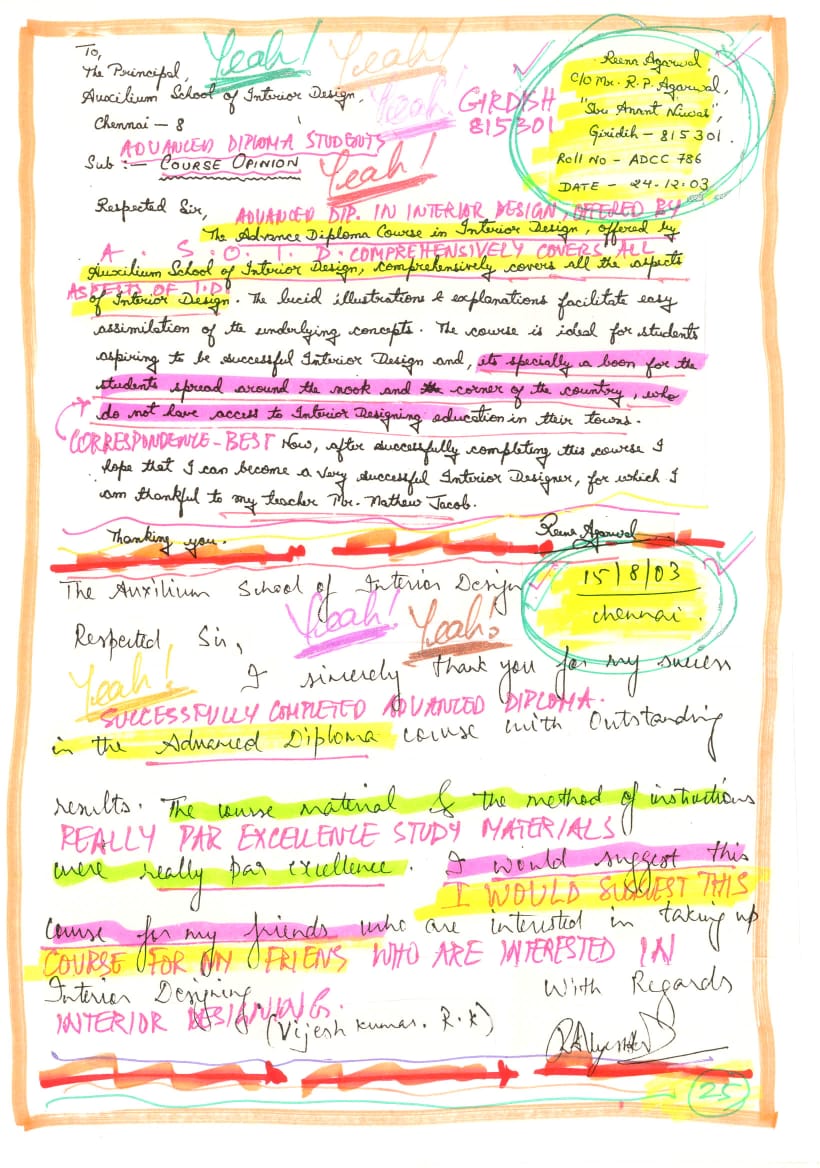 Yeah!
Yeah!
To,
The Principal,
Auxilium School of Interior Design,
Chennai – 8
Yeah!
GIRDISH
815301
Reena Agarwal
C/o Mr. R.P. Agarwal,
"Shri Anant Niwas",
Giridih – 815301.
Roll No – ADCC 786
DATE – 24-12-03
ADVANCED DIPLOMA STUDENTS
Sub :– COURSE OPINION
Yeah!
Respected Sir,
ADVANCED DIP. IN INTERIOR DESIGN, OFFERED BY
The Advance Diploma Course in Interior Design, offered by
A . S . O . I . D . COMPREHENSIVELY COVERS ALL
Auxilium School of Interior Design, comprehensively covers all the aspects
ASPECTS OF I.D
of Interior Design. The lucid illustrations & explanations facilitate easy
assimilation of the underlying concepts. The course is ideal for students
aspiring to be successful Interior Design and, its specially a boon for the
students spread around the nook and the corner of the country, who
do not have access to Interior Designing education in their towns.
CORRESPONDENCE - BEST
Now, after successfully completing this course I
hope that I can become a very successful Interior Designer, for which I
am thankful to my teacher Mr. Mathew Jacob.
Thanking you.
Reena Agarwal
The Auxilium School of Interior Design
15/8/03
Chennai.
Yeah!
Yeah!
Respected Sir,
Yeah!
I sincerely thank you for my success
SUCCESSFULLY COMPLETED ADVANCED DIPLOMA.
in the Advanced Diploma course with Outstanding
results. The course material & the method of instructions
REALLY PAR EXCELLENCE STUDY MATERIALS
were really par excellence. I would suggest this
I WOULD SUGGEST THIS
course for my friends who are interested in taking up
COURSE FOR MY FRIENS WHO ARE INTERESTED IN
Interior Designing
With Regards
INTERIOR DESIGNING.
(Vijesh kumar. R.K)
25